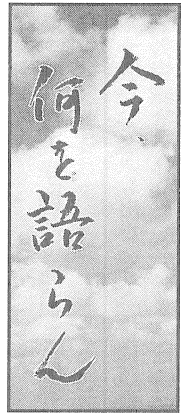 今、
何を語らん